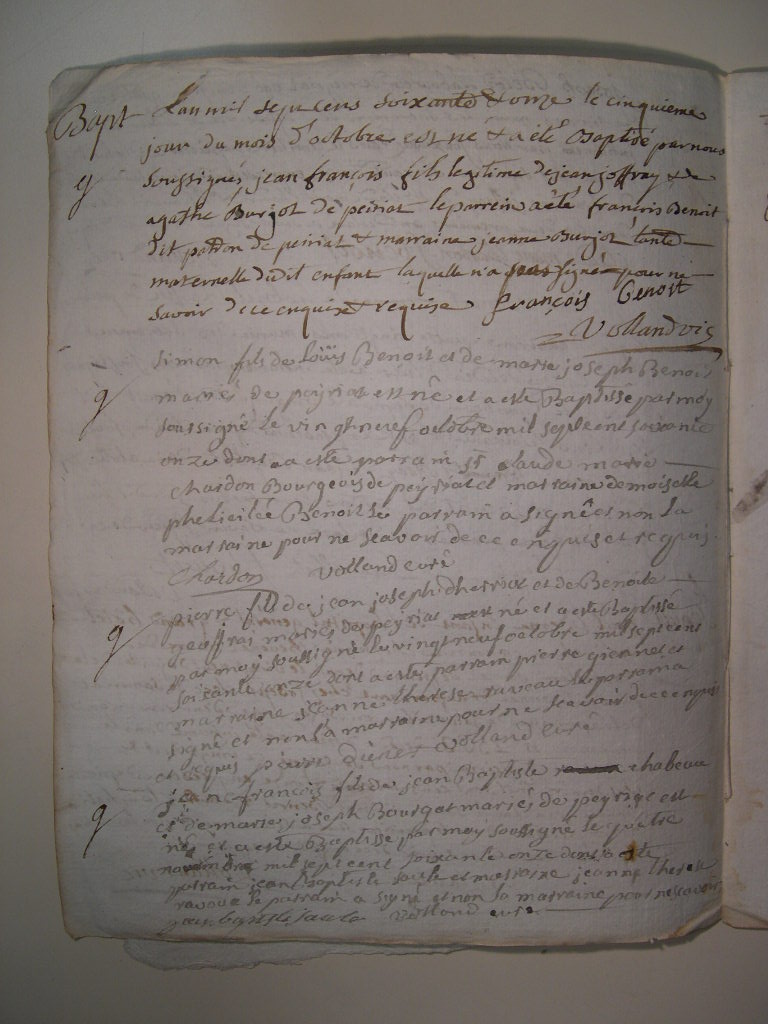 Bapt Lan mil sept cens soixante & onze le cinquieme
jour du mois d'octobre est né & a eté Baptisé par nous
soussignés jean françois fils legitime de jean joffray & de
agathe Burjot de peiriat le parrein a eté françois Benoit
dit patron de peiriat & marraine jeanne Burjot tante
maternelle dudit enfant laquelle n'a signé pour ne
savoir de ce enquise & requise françois Benoit
Volland vic
simon fils de loüis Benoit et de marie joseph Benoit
mariés de peyriat est nê et a esté Baptisse par moy
soussigné le vingt neuf octobre mil sept cent soixante
onze dont a esté parrain sr claude marie
Chardon Bourgeois de peyriat et marraine demoiselle
phelicitée Benoit le parrain a signê et non la
marraine pour ne scavoir de ce enquis et requis
Chardon Volland curé
pierre fils de jean joseph dherriat et de Benoite
geoffrai mariés de peyriat né et a esté Baptissé
par moy soussigné le vingt neuf octobre mil sept cent
soixante onze dont a esté parrain pierre giennet et
marraine jeanne therese raveau le parrain a
signé et non la marraine pour ne scavoir de ce enquis
et requis pierre Volland curé
jean françois fils de jean Baptiste chabeau
et de marie joseph Bourgot mariés de peyriat est
nés et a esté Baptisse par moy soussigné le quatre
novembre mil sept cent soixante onze dont a esté
parrain jean baptiste et marraine jeanne therese
ravaux le parrain a signé et non la marraine pour ne scavoir
Volland curé